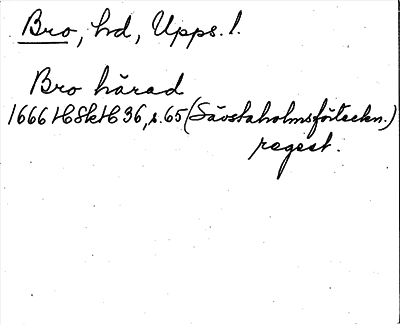 Bro, hd, Upps. l.
Bro härad
1666 HSH 36, s. 65 (Sävstaholmsförteckn.)
regest.